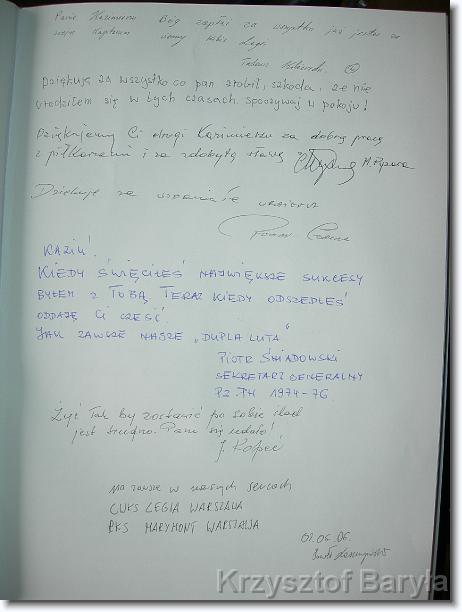 Panie Kazimierzu Bóg zapłać za wszystko
Dziękuję za wszystko co pan zrobił, szkoda, że nie
urodziłem się w tych czasach. Spoczywaj w pokoju!
Dziękujemy Ci drogi Kazimierzu za dobrą pracę
z piłkarzami i za zdobytą sławę
Dziękuję za wspaniałe
KAZIU!
KIEDY ŚWIĘCIŁEŚ NAJWIĘKSZE SUKCESY
BYŁEM Z TOBĄ TERAZ KIEDY ODSZEDŁEŚ
ODDAJĘ CI CZEŚĆ.
JAK ZAWSZE NASZE „DUPLA LUTA"
PIOTR ŚNIADOWSKI
SEKRETARZ GENERALNY
PZPN 1974-76
Żyć tak by zostawić po sobie ślad
jest trudno. Panu się udało!
na zawsze w naszych sercach
CWKS LEGIA WARSZAWA
RKS MARYMONT WARSZAWA
01.06.06.
Krzysztof Baryła